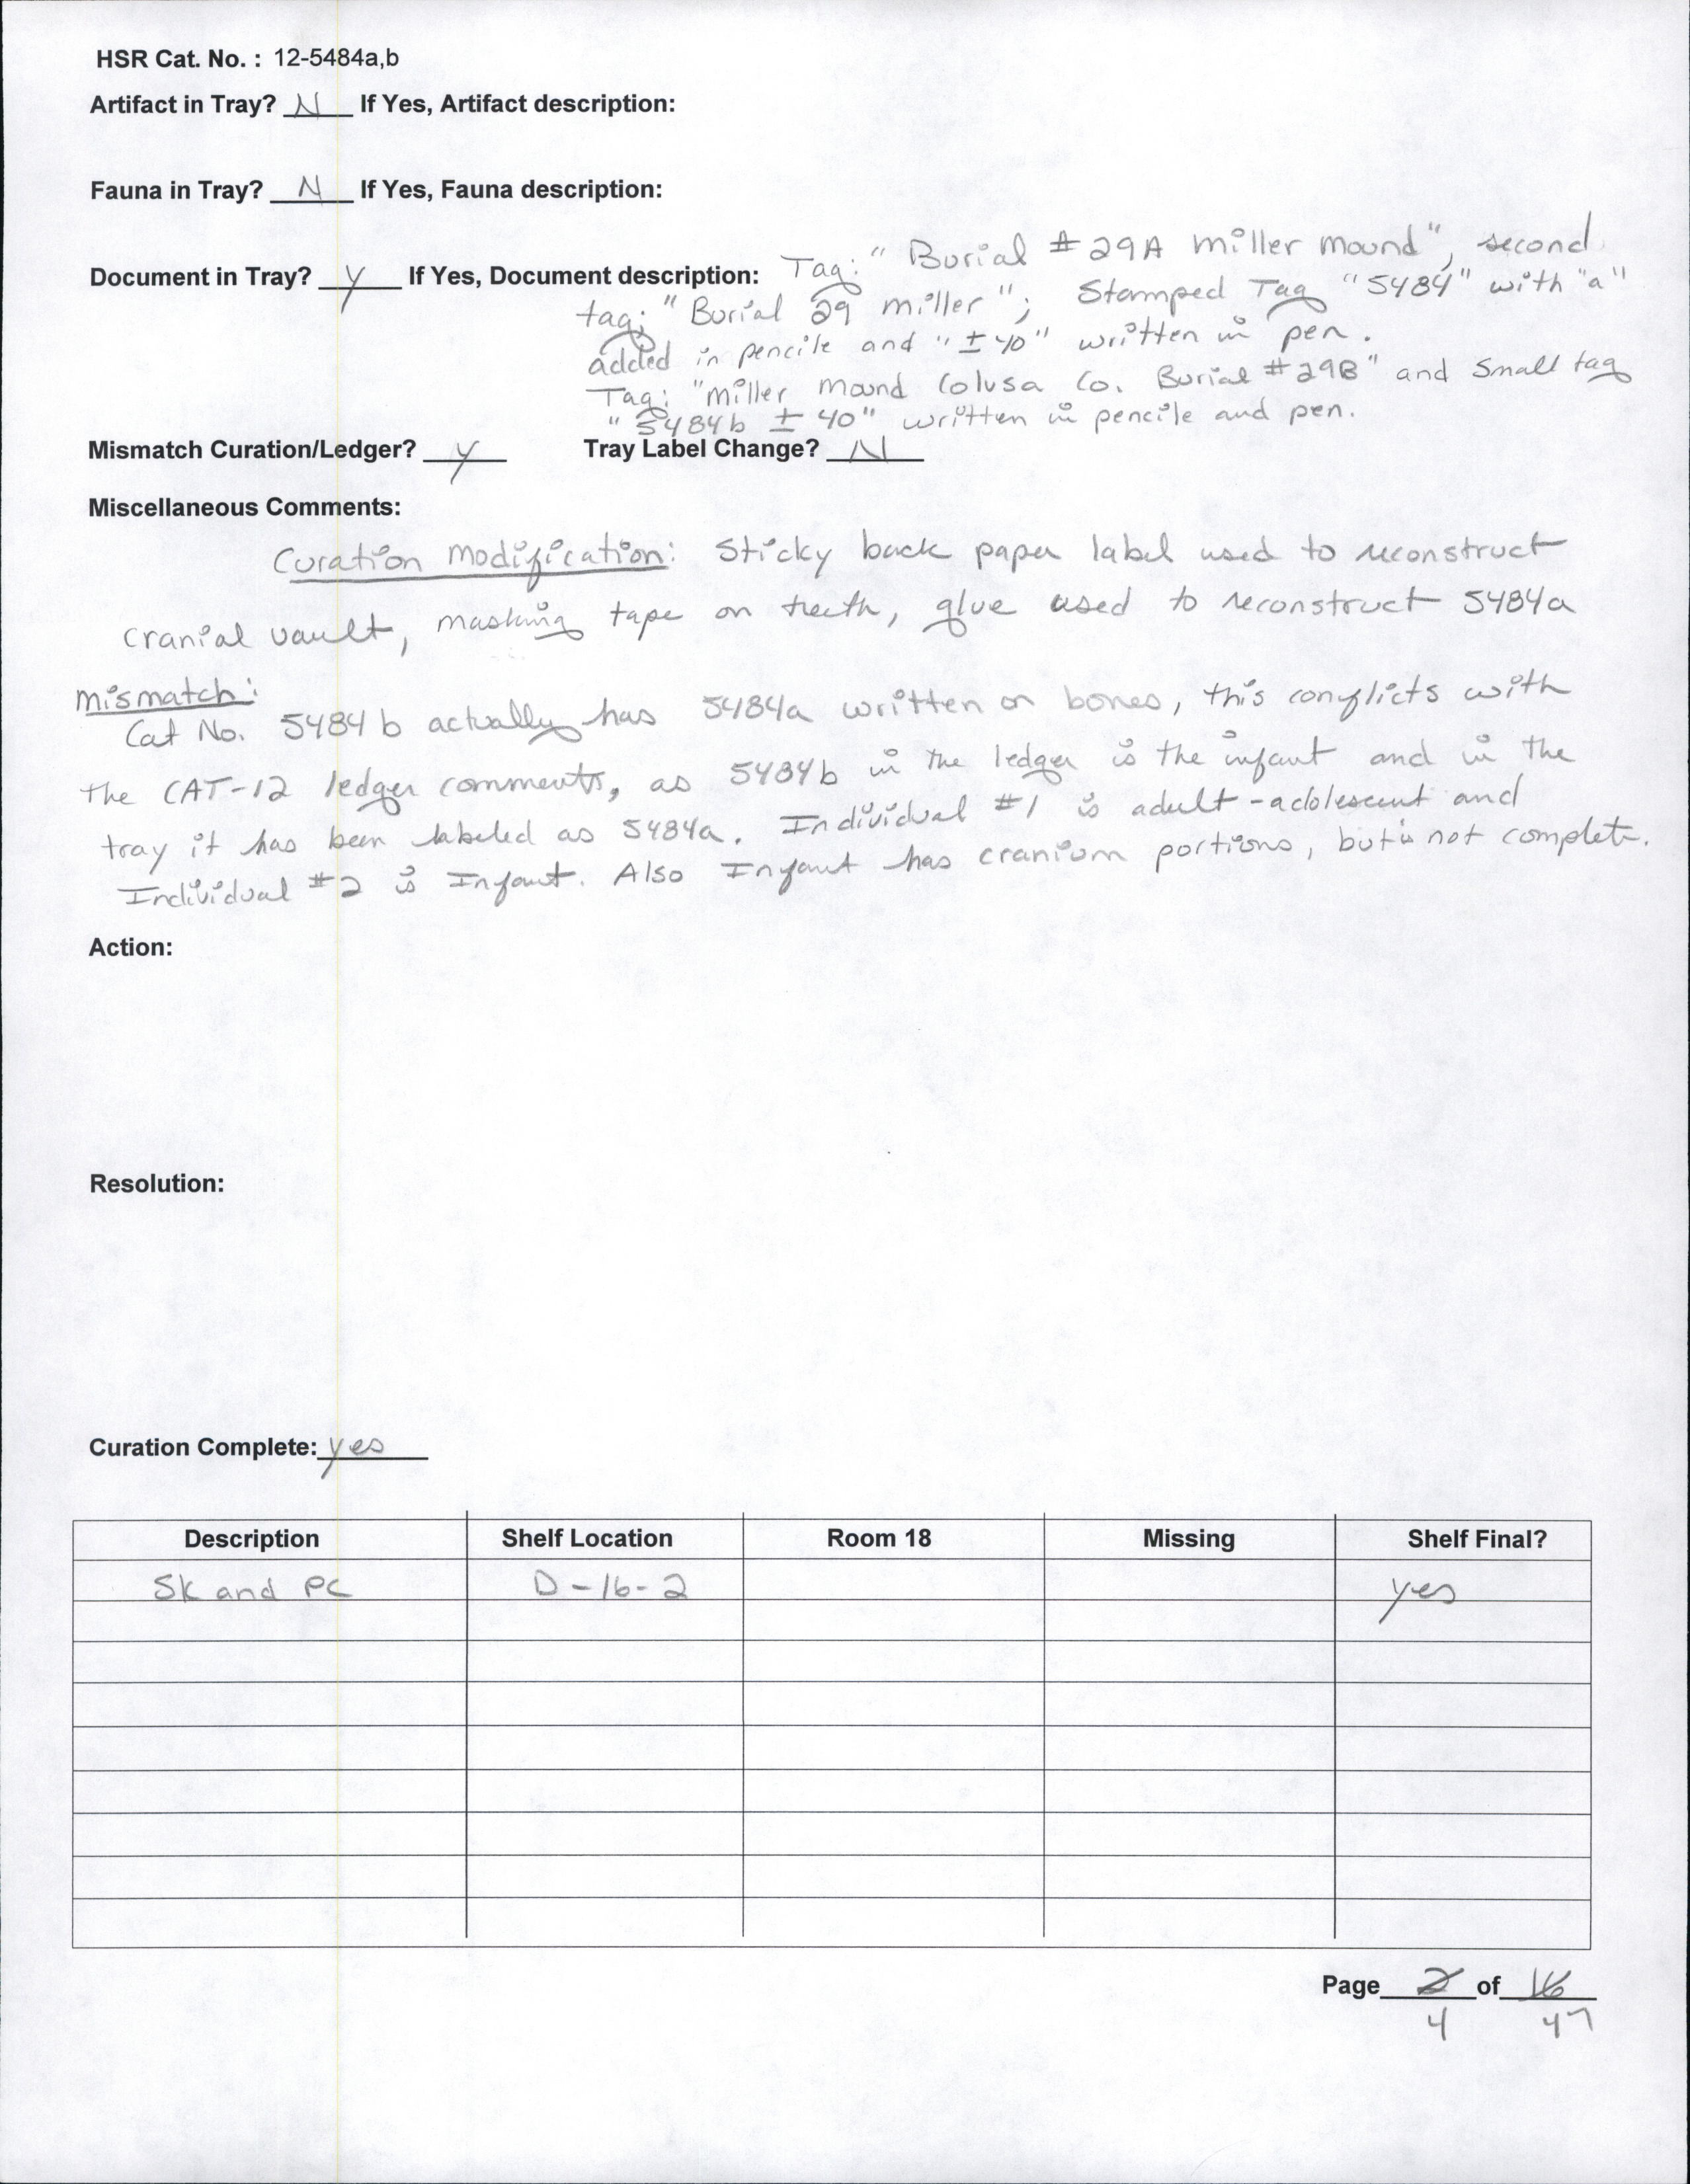 HSR Cat. No. : 12-5484a,b
Artifact in Tray? N If Yes, Artifact description:
Fauna in Tray? N If Yes, Fauna description:
Document in Tray? Y If Yes, Document description: Tag: "Burial #29A miller mound", second
tag: "Burial 29 miller"; Stamped Tag "5484" with "a"
added in pencile and "± 40" written in pen.
Tag: "miller mound Colusa Co. Burial #29B" and Small tag
"5484b ± 40" written in pencile and pen.
Mismatch Curation/Ledger? Y Tray Label Change? N
Miscellaneous Comments:
Curation modification: Sticky back paper label used to reconstruct
cranial vault, masking tape on teeth, glue used to reconstruct 5484a
mismatch:
Cat No. 5484b actually has 5484a written on bones, this conflicts with
the CAT-12 ledger comments, as 5484b in the ledger is the infant and in the
tray it has been labeled as 5484a. Individual #1 is adult-adolescent and
Individual #2 is Infant. Also Infant has cranium portions, but is not complete.
Action:
Resolution:
Curation Complete: yes
Description Shelf Location Room 18 Missing Shelf Final?
Sk and PC D-16-2 yes
Page 2 of 16
4 47